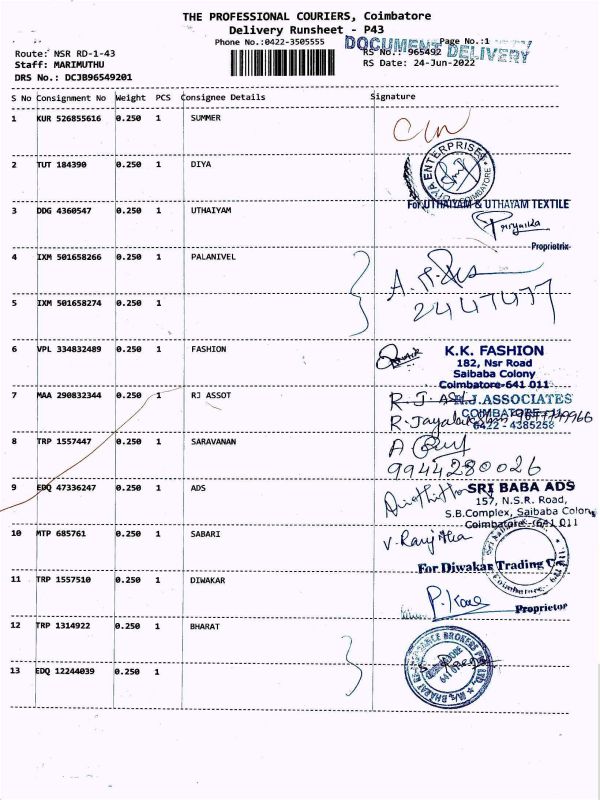 THE PROFESSIONAL COURIERS, Coimbatore
Delivery Runsheet - P43
Phone No.:0422-3505555
Page No.:1
DOCUMENT DELIVERY
Route: NSR RD-1-43
RS No.: 965492
Staff: MARIMUTHU
RS Date: 24-Jun-2022
DRS No.: DCJB96549201
S No Consignment No Weight PCS Consignee Details Signature
1 KUR 526855616 0.250 1 SUMMER
2 TUT 184390 0.250 1 DIYA
DIYA ENTERPRISES COIMBATORE
3 DDG 4360547 0.250 1 UTHAIYAM
For UTHAIYAM & UTHAYAM TEXTILE
Priyanka
Proprietrix
4 IXM 501658266 0.250 1 PALANIVEL
5 IXM 501658274 0.250 1
2447477
6 VPL 334832489 0.250 1 FASHION
K.K. FASHION
182, Nsr Road
Saibaba Colony
Coimbatore-641 011
7 MAA 290832344 0.250 1 RJ ASSOT
R.J.ASSOCIATES
COIMBATORE
0422 - 4385258
8 TRP 1557447 0.250 1 SARAVANAN
9944280026
9 EDQ 47336247 0.250 1 ADS
SRI BABA ADS
157, N.S.R. Road,
S.B.Complex, Saibaba Colony
Coimbatore-641 011
10 MTP 685761 0.250 1 SABARI
V. Ranjitha
11 TRP 1557510 0.250 1 DIWAKAR
For Diwakar Trading
Proprietor
12 TRP 1314922 0.250 1 BHARAT
13 EDQ 12244039 0.250 1